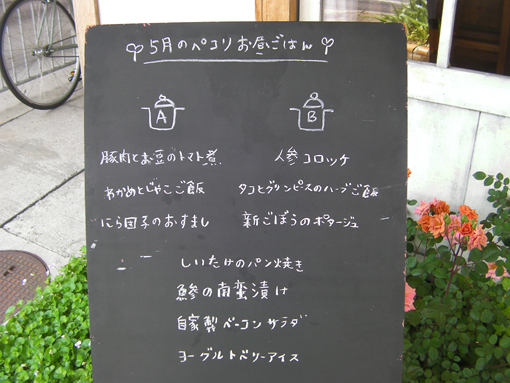 5月のペコリお昼ごはん
A
豚肉とお豆のトマト煮
わかめとじゃこご飯
にら団子のおすまし
B
人参コロッケ
タコとグリンピースのハーブご飯
新ごぼうのポタージュ
しいたけのパン焼き
鯵の南蛮漬け
自家製ベーコンサラダ
ヨーグルトベリーアイス